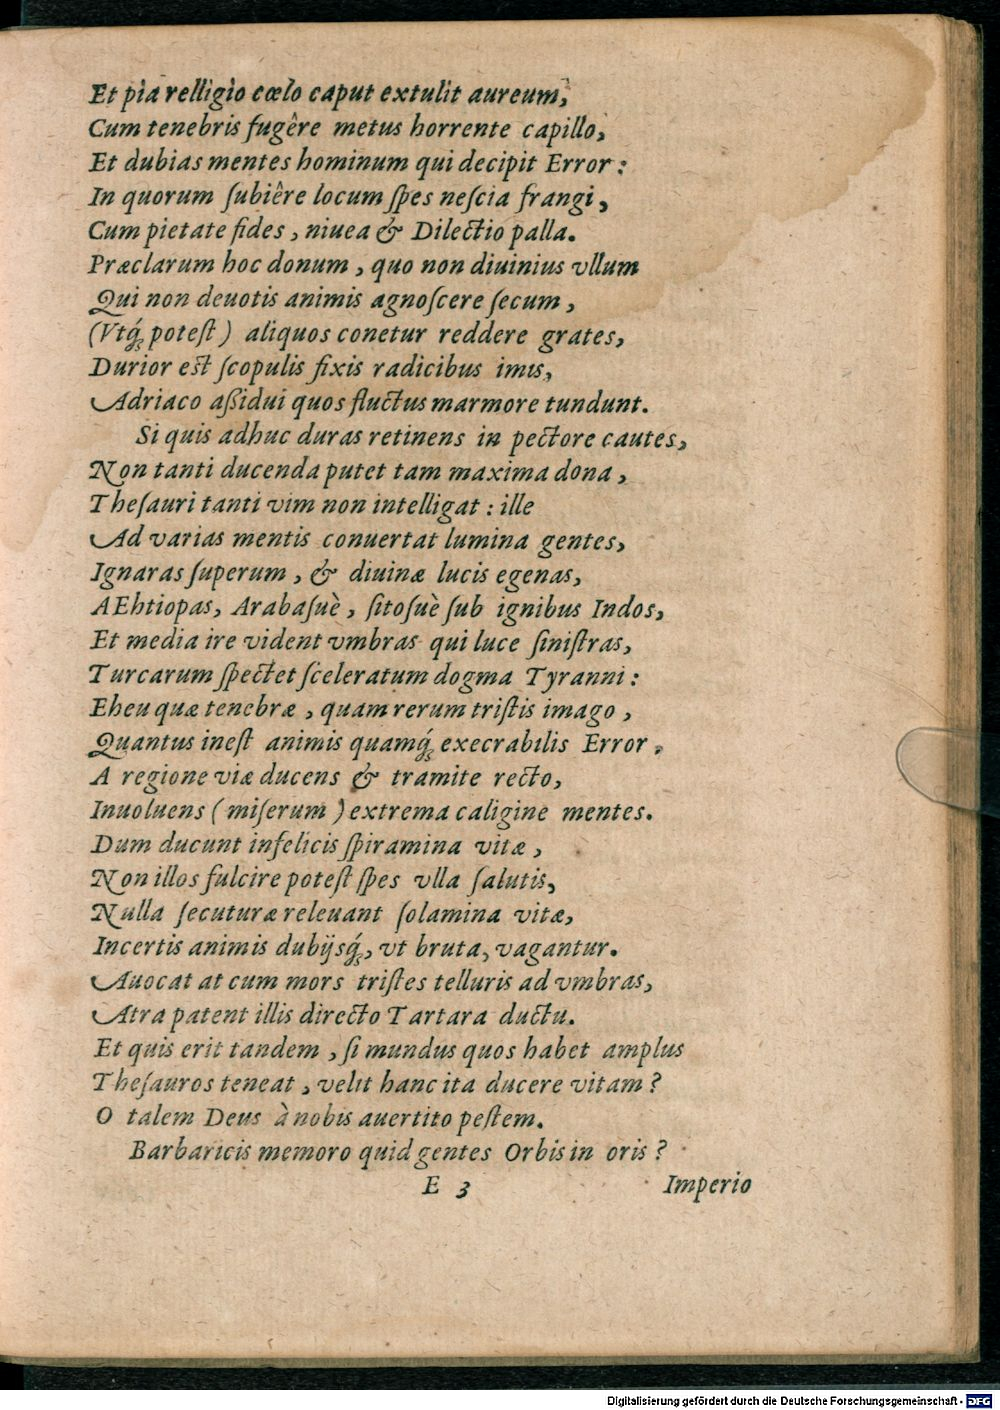 Et pia relligio cœlo caput extulit aureum,
Cum tenebris fugêre metus horrente capillo,
Et dubias mentes hominum qui decipit Error:
In quorum ſubiêre locum ſpes neſcia frangi,
Cum pietate fides, niuea & Dilectio palla.
Præclarum hoc donum, quo non diuinius vllum
Qui non deuotis animis agnoſcere ſecum,
(Vtq́ʒ poteſt) aliquos conetur reddere grates,
Durior est ſcopulis fixis radicibus imis,
Adriaco aßidui quos fluctus marmore tundunt.
Si quis adhuc duras retinens in pectore cautes,
Non tanti ducenda putet tam maxima dona,
Theſauri tanti vim non intelligat: ille
Ad varias mentis conuertat lumina gentes,
Ignaras ſuperum, & diuinæ lucis egenas,
AEhtiopas, Arabaſuè, ſitoſuè ſub ignibus Indos,
Et media ire vident vmbras qui luce ſiniſtras,
Turcarum ſpectet ſceleratum dogma Tyranni:
Eheu quæ tenebræ, quam rerum triſtis imago,
Quantus ineſt animis quamq́ʒ execrabilis Error,
A regione viæ ducens & tramite recto,
Inuoluens (miſerum) extrema caligine mentes.
Dum ducunt infelicis ſpiramina vitæ,
Non illos fulcire poteſt ſpes vlla ſalutis,
Nulla ſecuturæ releuant ſolamina vitæ,
Incertis animis dubijsq́ʒ, vt bruta, vagantur.
Auocat at cum mors triſtes telluris ad vmbras,
Atra patent illis directo Tartara ductu.
Et quis erit tandem, ſi mundus quos habet amplus
Theſauros teneat, velit hanc ita ducere vitam?
O talem Deus à nobis auertito peſtem.
Barbaricis memoro quid gentes Orbis in oris?
E 3 Imperio
Digitalisierung gefördert durch die Deutsche Forschungsgemeinschaft - DFG